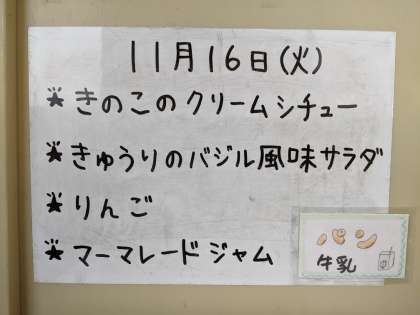 11月16日(火)
* きのこのクリームシチュー
* きゅうりのバジル風味サラダ
* りんご
* マーマレードジャム
パン
牛乳